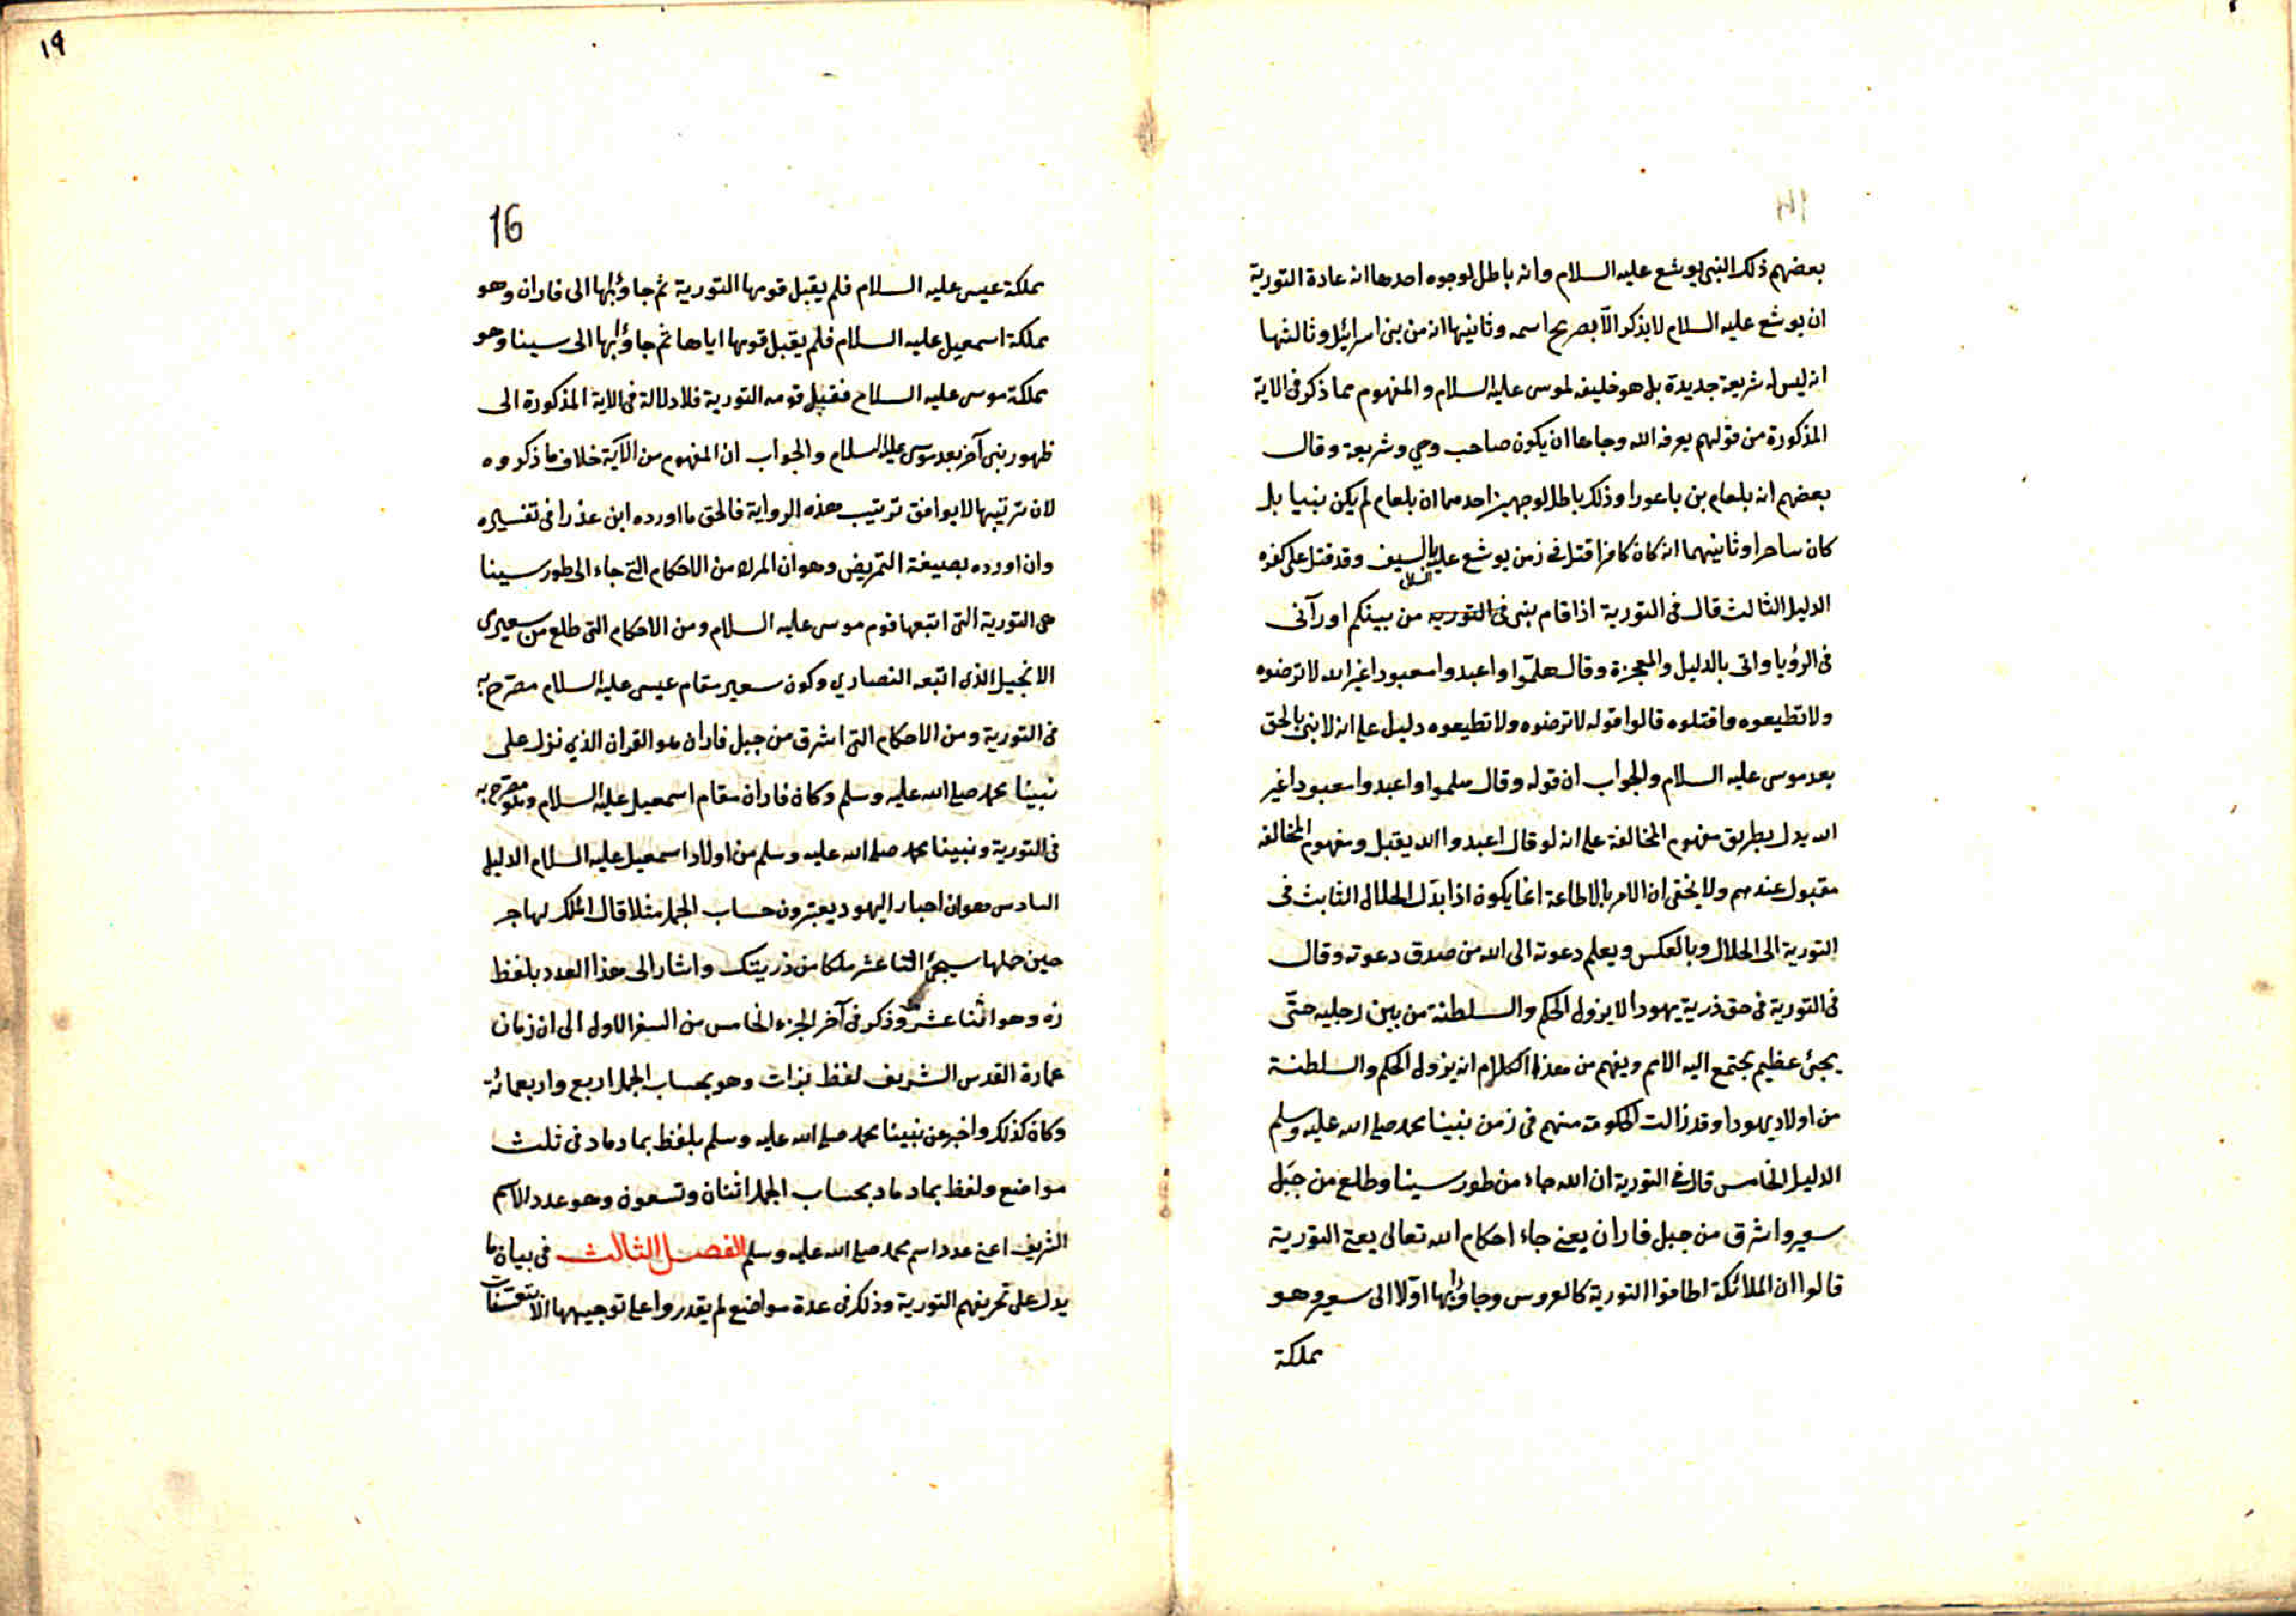 بعضهم ذلك النبى يوشع عليه السلام وانه باطل لوجوه احدها انه عادة التورية
ان يوشع عليه السلام لا يذكر الّا بصريح اسمه وثانيها انه من بنى اسرائيل وثالثها
انه ليس له شريعة جديدة بل هو خليفه لموسى عليه السلام والمفهوم مما ذكر فى الاية
المذكورة من قولهم يعرفه الله وجاها ان يكون صاحب وحي وشريعة وقال
بعضهم انه بلعام بن باعورا وذلك باطل لوجهين احدهما ان بلعام لم يكن نبيا بل
كان ساحرا وثانيهما انه كان كافرا قتل فى زمن يوشع عليه السلام بالسيف وقد قتل على كفره
الدليل الثالث قال فى التورية اذا قام بنبى فى التورية من بينكم او رآنى
فى الرؤيا واتى بالدليل والمعجزة وقال هلمّوا واعبدوا معبودا غير الله لا ترضوه
ولا تطيعوه واقتلوه قالوا قوله لا ترضوه ولا تطيعوه دليل على انه لا بنى بالحق
بعد موسى عليه السلام والجواب ان قوله وقال هلموا واعبدوا معبودا غير
الله يدل بطريق مفهوم المخالفة على انه لو قال اعبدوا الله يقبل ومفهوم المخالفه
مقبول عندهم ولا يخفى ان الامر بالاطاعة انما يكون اذا بدّل الحلال الثابث فى
التورية الى الحلال وبالعكس ويعلم دعوته الى الله من صدق دعوته وقال
فى التورية فى حق ذرية يهودا لا يزول الحكم والسلطنة من بين رجليه حتّى
يجئ عظيم يجتمع اليه الامم ويفهم من هذا الكلام انه يزول الحكم والسلطنة
من اولاد يهودا وقد زالت الحكومة منهم فى زمن نبينا محمد صلى الله عليه وسلم
الدليل الخامس قال فى التورية ان الله جاء من طور سينا وطلع من جبل
سعير واشرق من جبل فاران يعنى جاء احكام الله تعالى يعنى التورية
قالوا ان الملائكة اطافوا التورية كالعروس وجاؤا بها اوّلا الى سعير وهو
مملكة
19
16
مملكة عيسى عليه السلام فلم يقبل قومها التورية ثم جاؤا بها الى فاران وهو
مملكة اسمعيل عليه السلام فلم يقبل قومها اياها ثم جاؤا بها الى سينا وهو
مملكة موسى عليه السلام فقبل قومه التورية فلا دلالة فى الاية المذكورة الى
ظهور بنى آخر بعد موسى عليه السلام والجواب ان المفهوم من الآية خلاف ما ذكروه
لان ترتيبها لا يوافق ترتيب هذه الرواية فالحق ما اورده ابن عذرا فى تفسيره
وان اورده بصيغة التمريض وهو ان المراد من الاحكام التى جاء الى طور سينا
هى التورية التى اتبعها قوم موسى عليه السلام ومن الاحكام التى طلع من سعير هى
الانجيل الذى اتبعه النصارى وكون سعير مقام عيسى عليه السلام مصرّح به
فى التورية ومن الاحكام التى اشرق من جبل فاران هو القران الذي نزل على
نبينا محمد صلى الله عليه وسلم وكان فاران مقام اسمعيل عليه السلام وهو مصرّح به
فى التورية ونبينا محمد صلى الله عليه وسلم من اولاد اسمعيل عليه السلام الدليل
السادس هو ان احبار اليهود يعتبرون حساب الجمل مثلا قال الملك لهاجر
حين حملها سيجئ اثنا عشر ملكا من ذريتك واشار الى هذا العدد بلفظ
زه وهو اثنا عشر وذكر فى آخر الجزء الخامس من السفر الاول الى ان زمان
عمارة القدس الشريف لفظ بزات وهو بحساب الجمل اربع واربعمائة
وكان كذلك واخبر عن نبينا محمد صلى الله عليه وسلم بلفظ بماد ماد فى ثلث
مواضع ولفظ بماد ماد بحساب الجمل اثنان وتسعون وهو عدد الاسم
الشريف اعنى عدد اسم محمد صلى الله عليه وسلم الفصل الثالث فى بيان ما
يدل على تحريفهم التورية وذلك فى عدة مواضع لم يقدروا على توجيهها الّا بتعسّفات